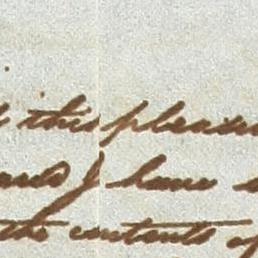 this pleasu
I have
the contents of